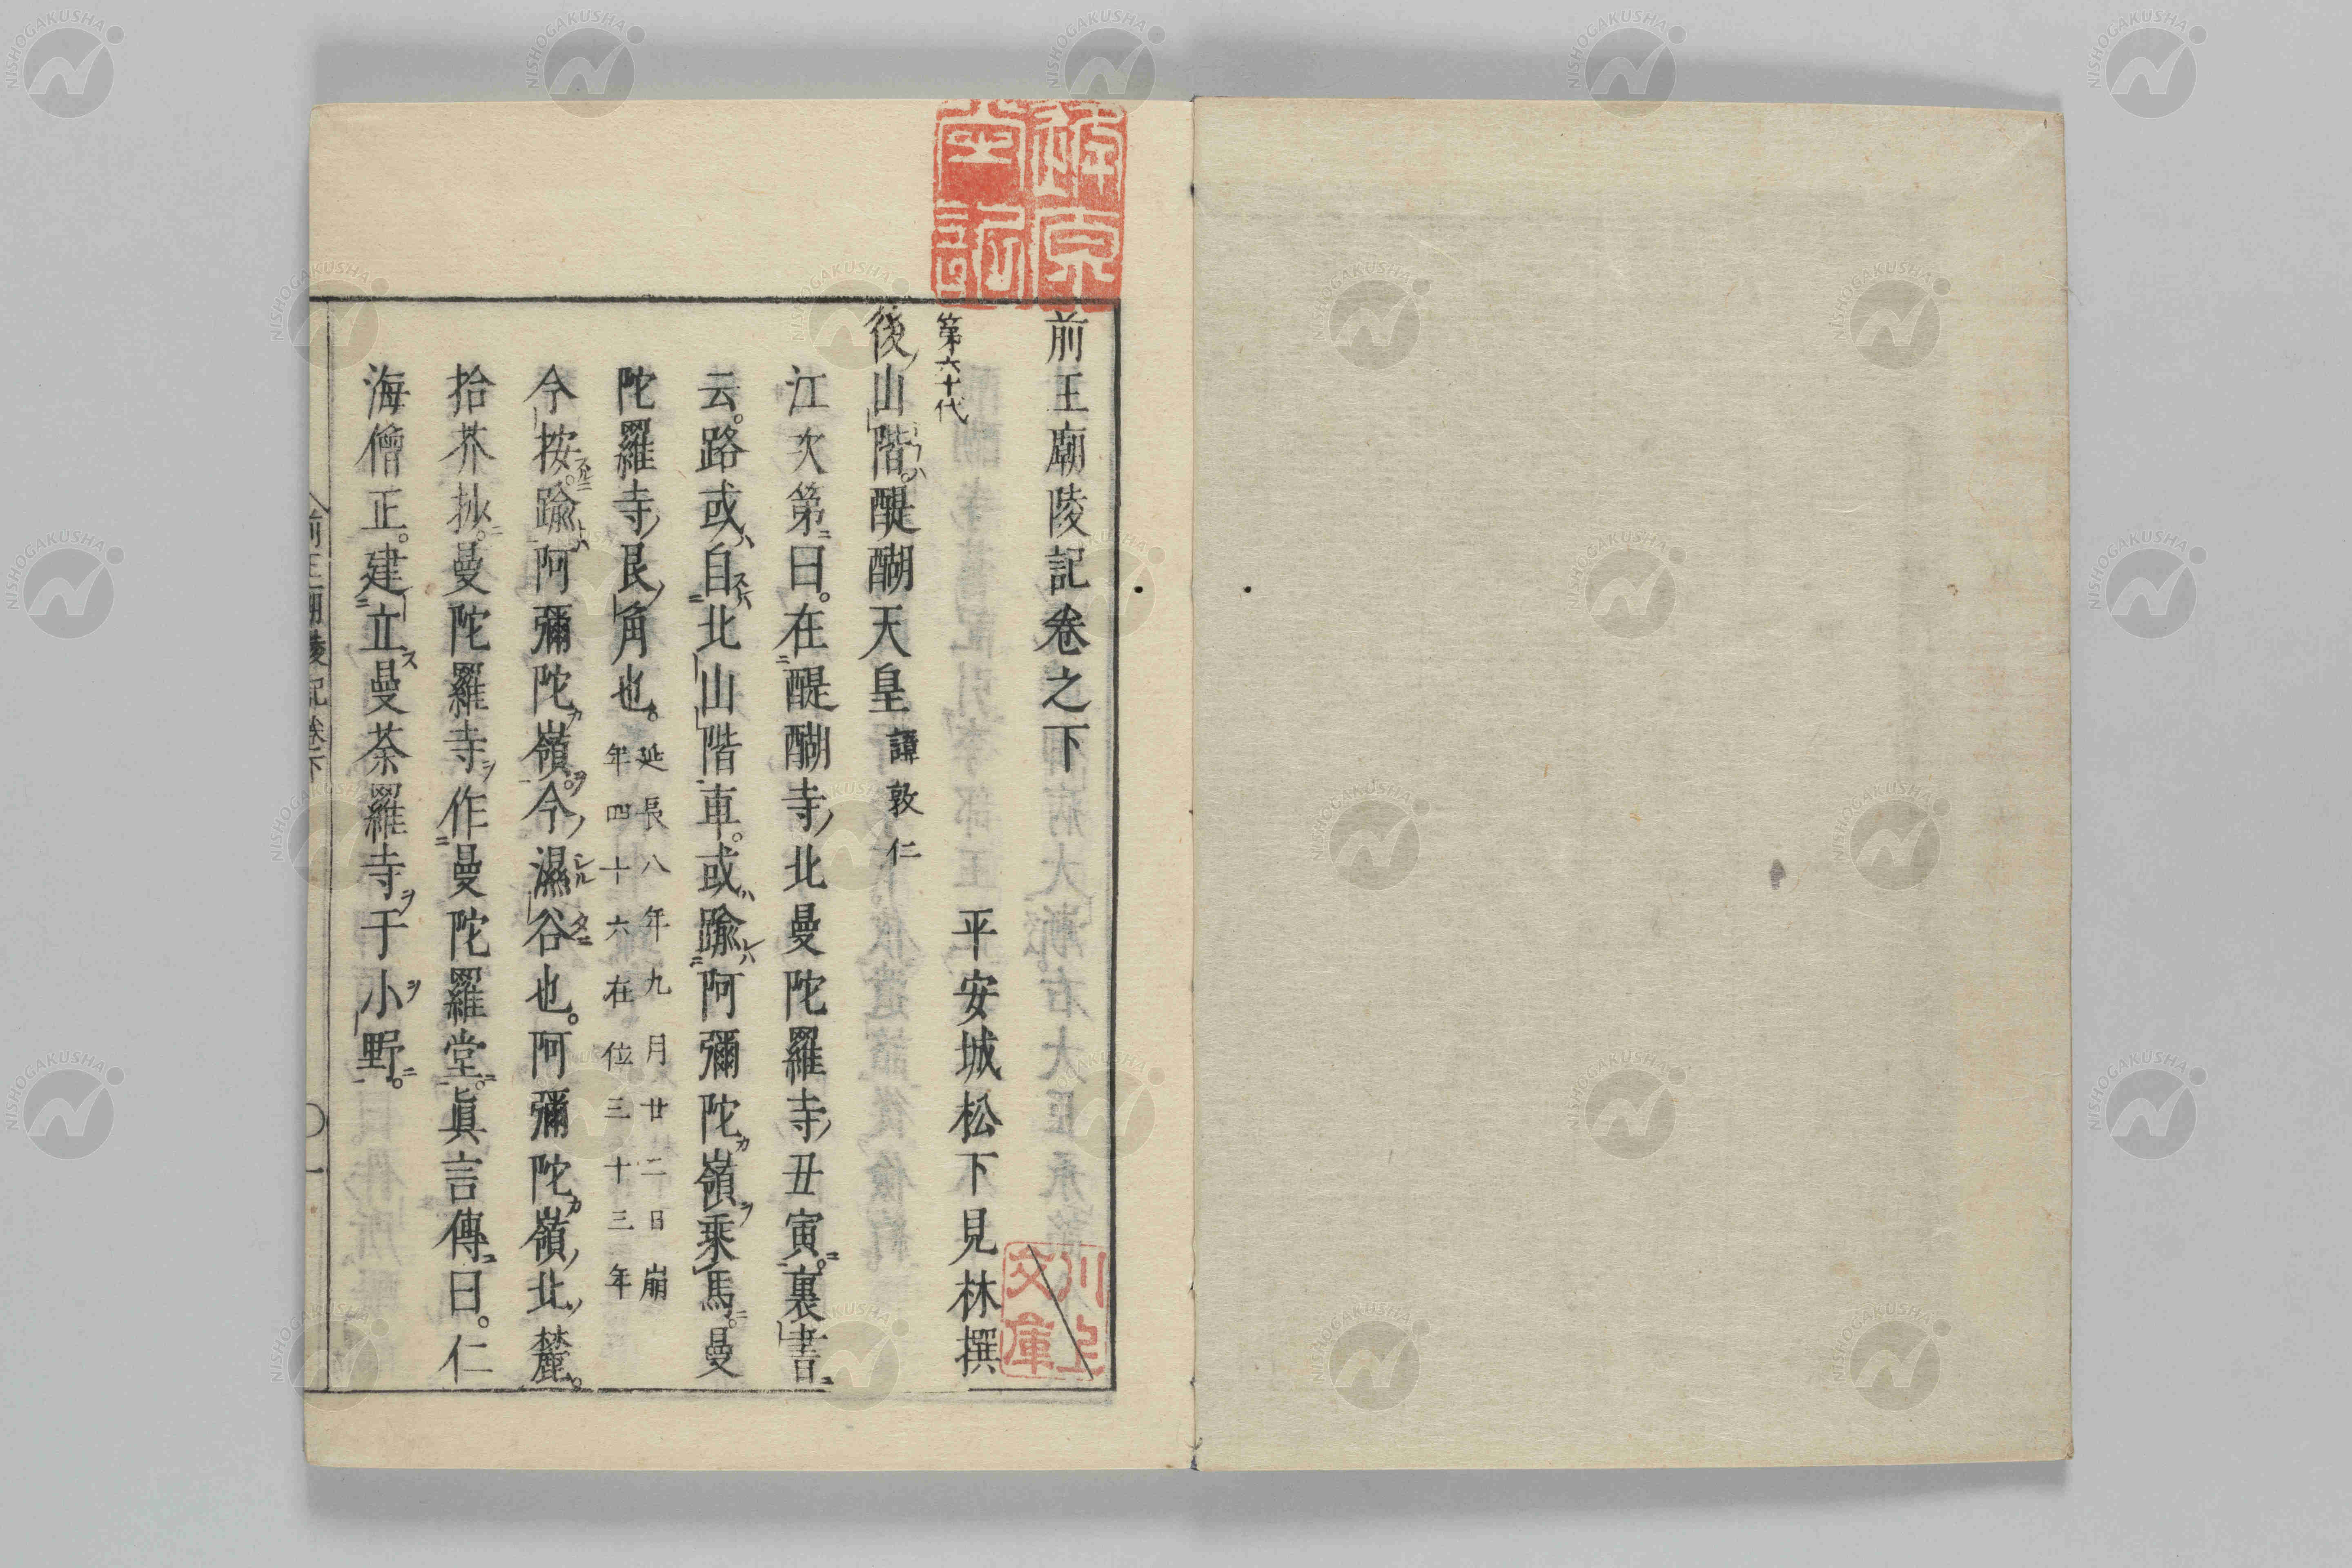 前王廟陵記卷之下
平安城松下見林撰
第六十代
後山階醍醐天皇 諱敦仁
江次第曰。在醍醐寺北曼陀羅寺丑寅。裏書
云。路或自北山階車。或踰阿彌陀嶺乘馬。曼
陀羅寺艮角也。延長八年九月廿二日崩
年四十六在位三十三年
今按踰阿彌陀嶺。今濕谷也。阿彌陀嶺北麓。
拾芥抄。曼陀羅寺作曼陀羅堂。眞言傳曰。仁
海僧正。建立曼荼羅寺于小野。
前王廟陵記卷下 〇一
川上文庫
NISHOGAKUSHA